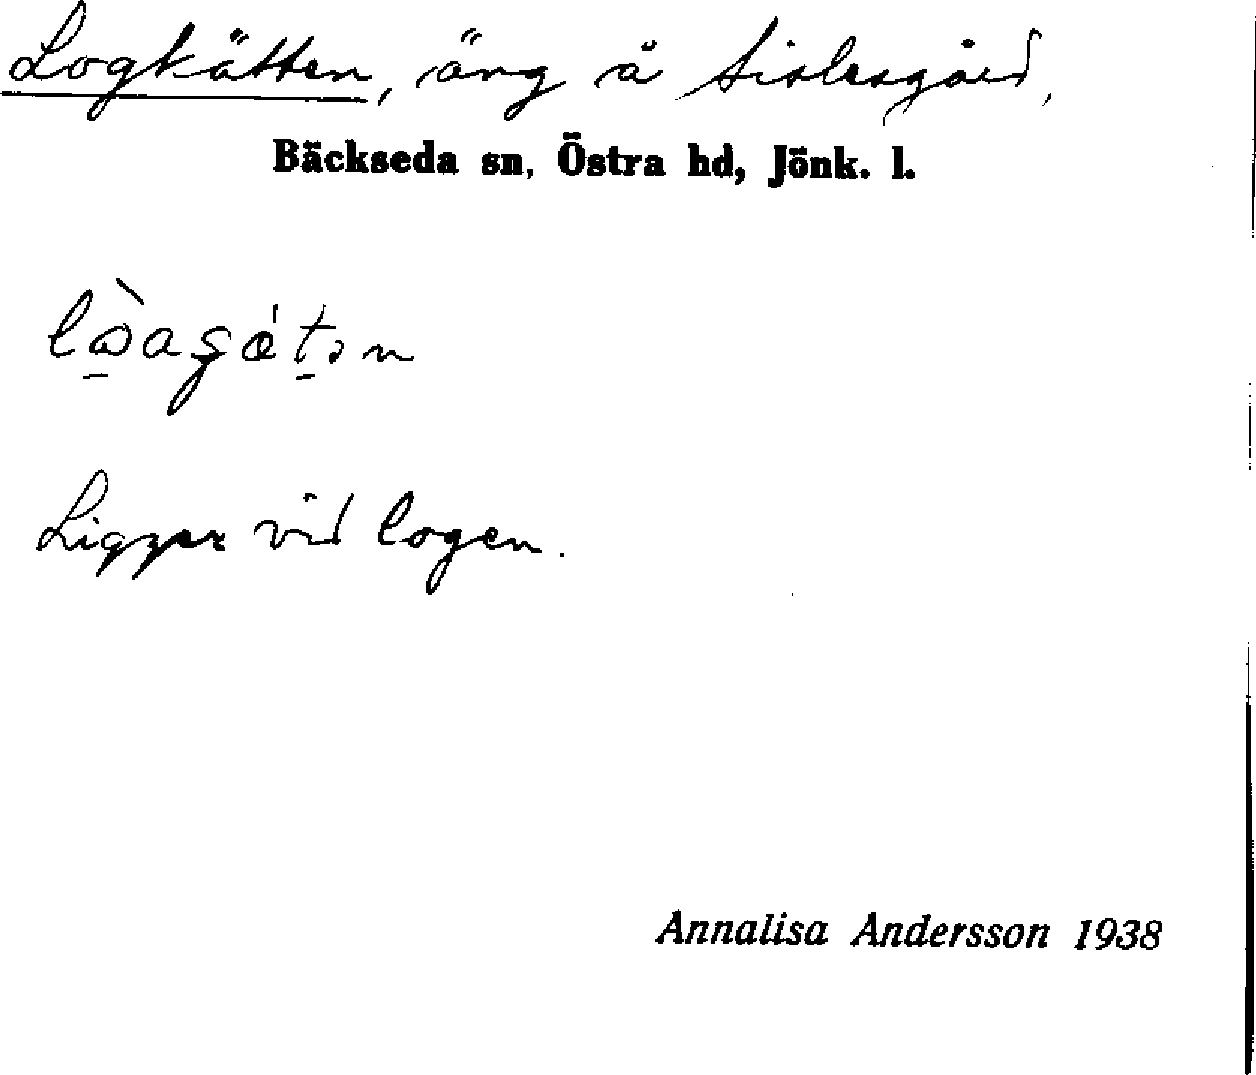 Logkätten, äng å Sislesgård,
Bäckseda sn, Östra hd, Jönk. l.
Ligger vid logen.
Annalisa Andersson 1938